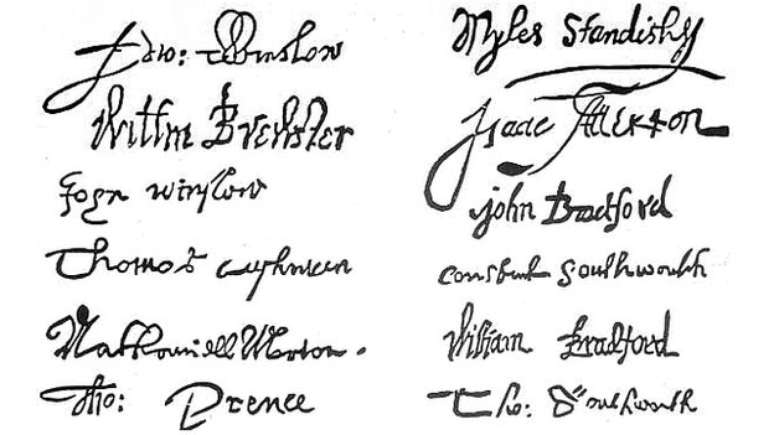 Edw: Winslow
Willm Brewster
John winslow
Thomas Cushman
Nathaniell Morton.
Tho: Prence
Myles Standish
Isaac Allerton
john Bradford
constant Southworth
William Bradford
Tho: Southworth